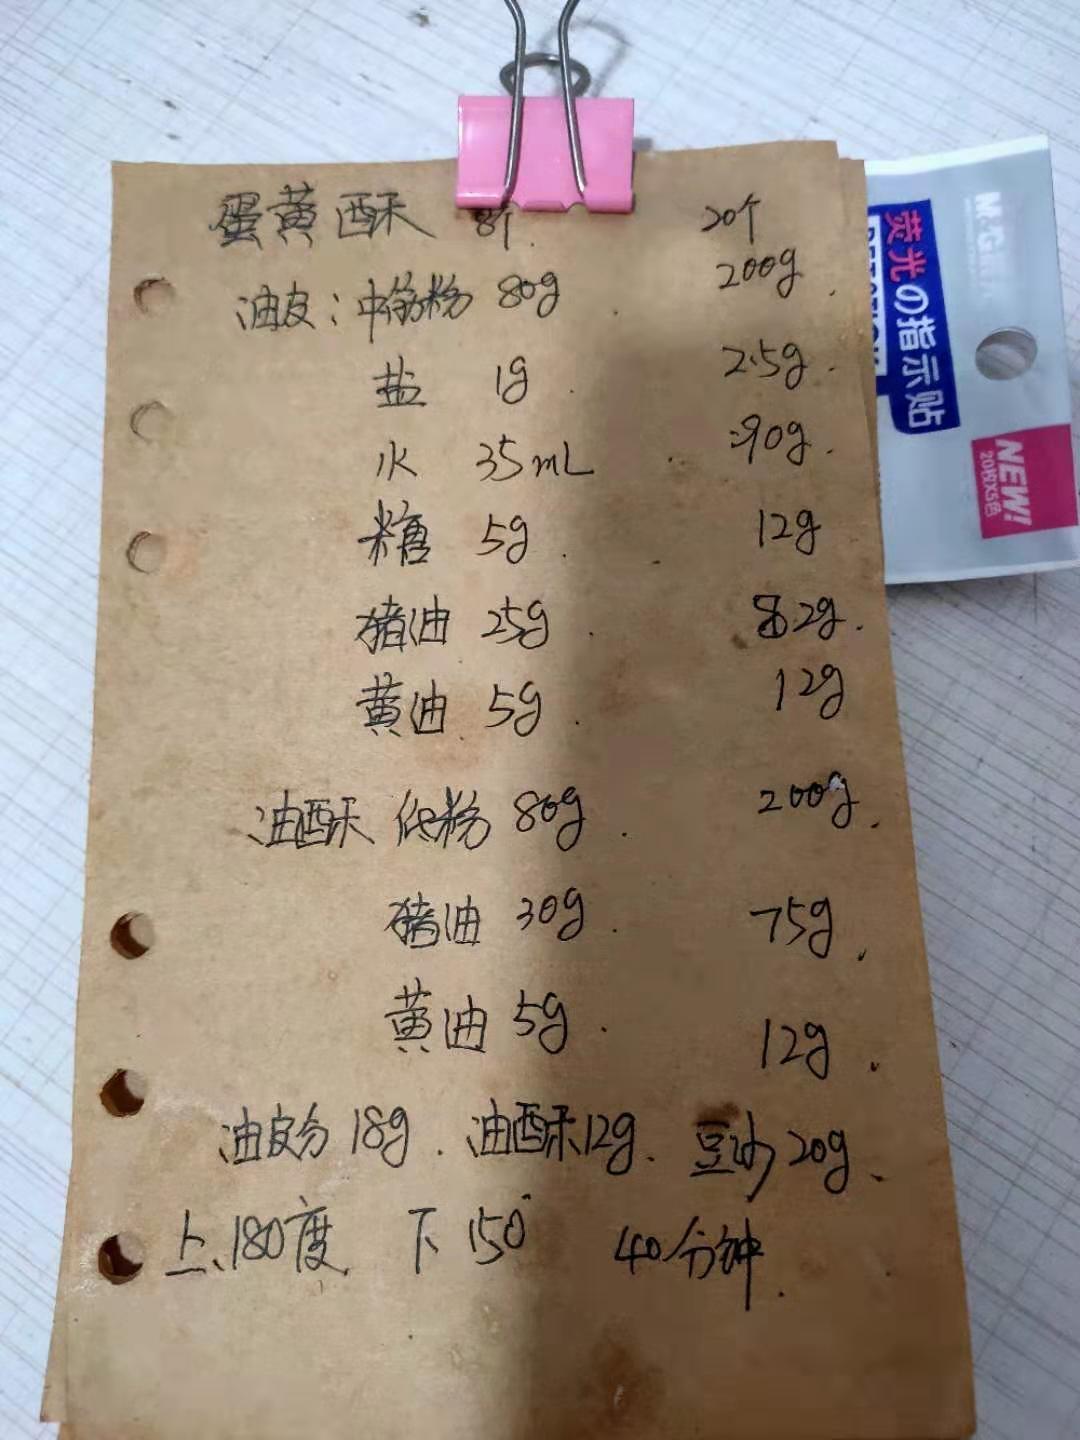 蛋黄酥 8个. 20个
油皮：中筋粉 80g . 200g .
盐 1g . 2.5g .
水 35mL . 90g .
糖 5g . 12g
猪油 25g . 62g .
黄油 5g . 12g
油酥 低粉 80g . 200g .
猪油 30g . 75g .
黄油 5g . 12g .
油皮分 18g . 油酥12g. 豆沙 20g .
上、180度. 下 150° 40分钟.
M&G
荧光の指示贴
NEW!
20枚X5色